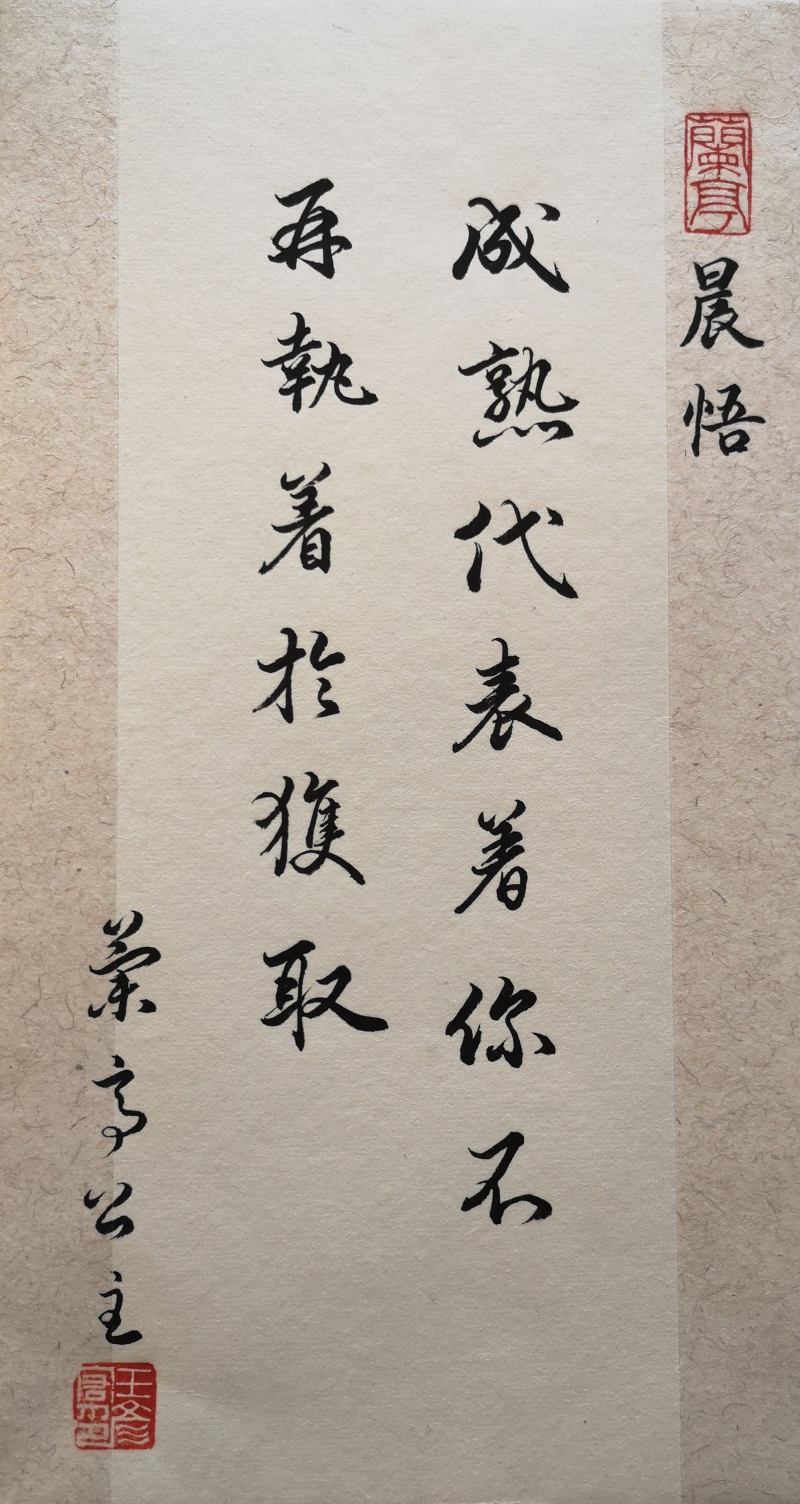 蘭亭
晨悟
成熟代表着你不
再執着於獲取
蘭亭公主